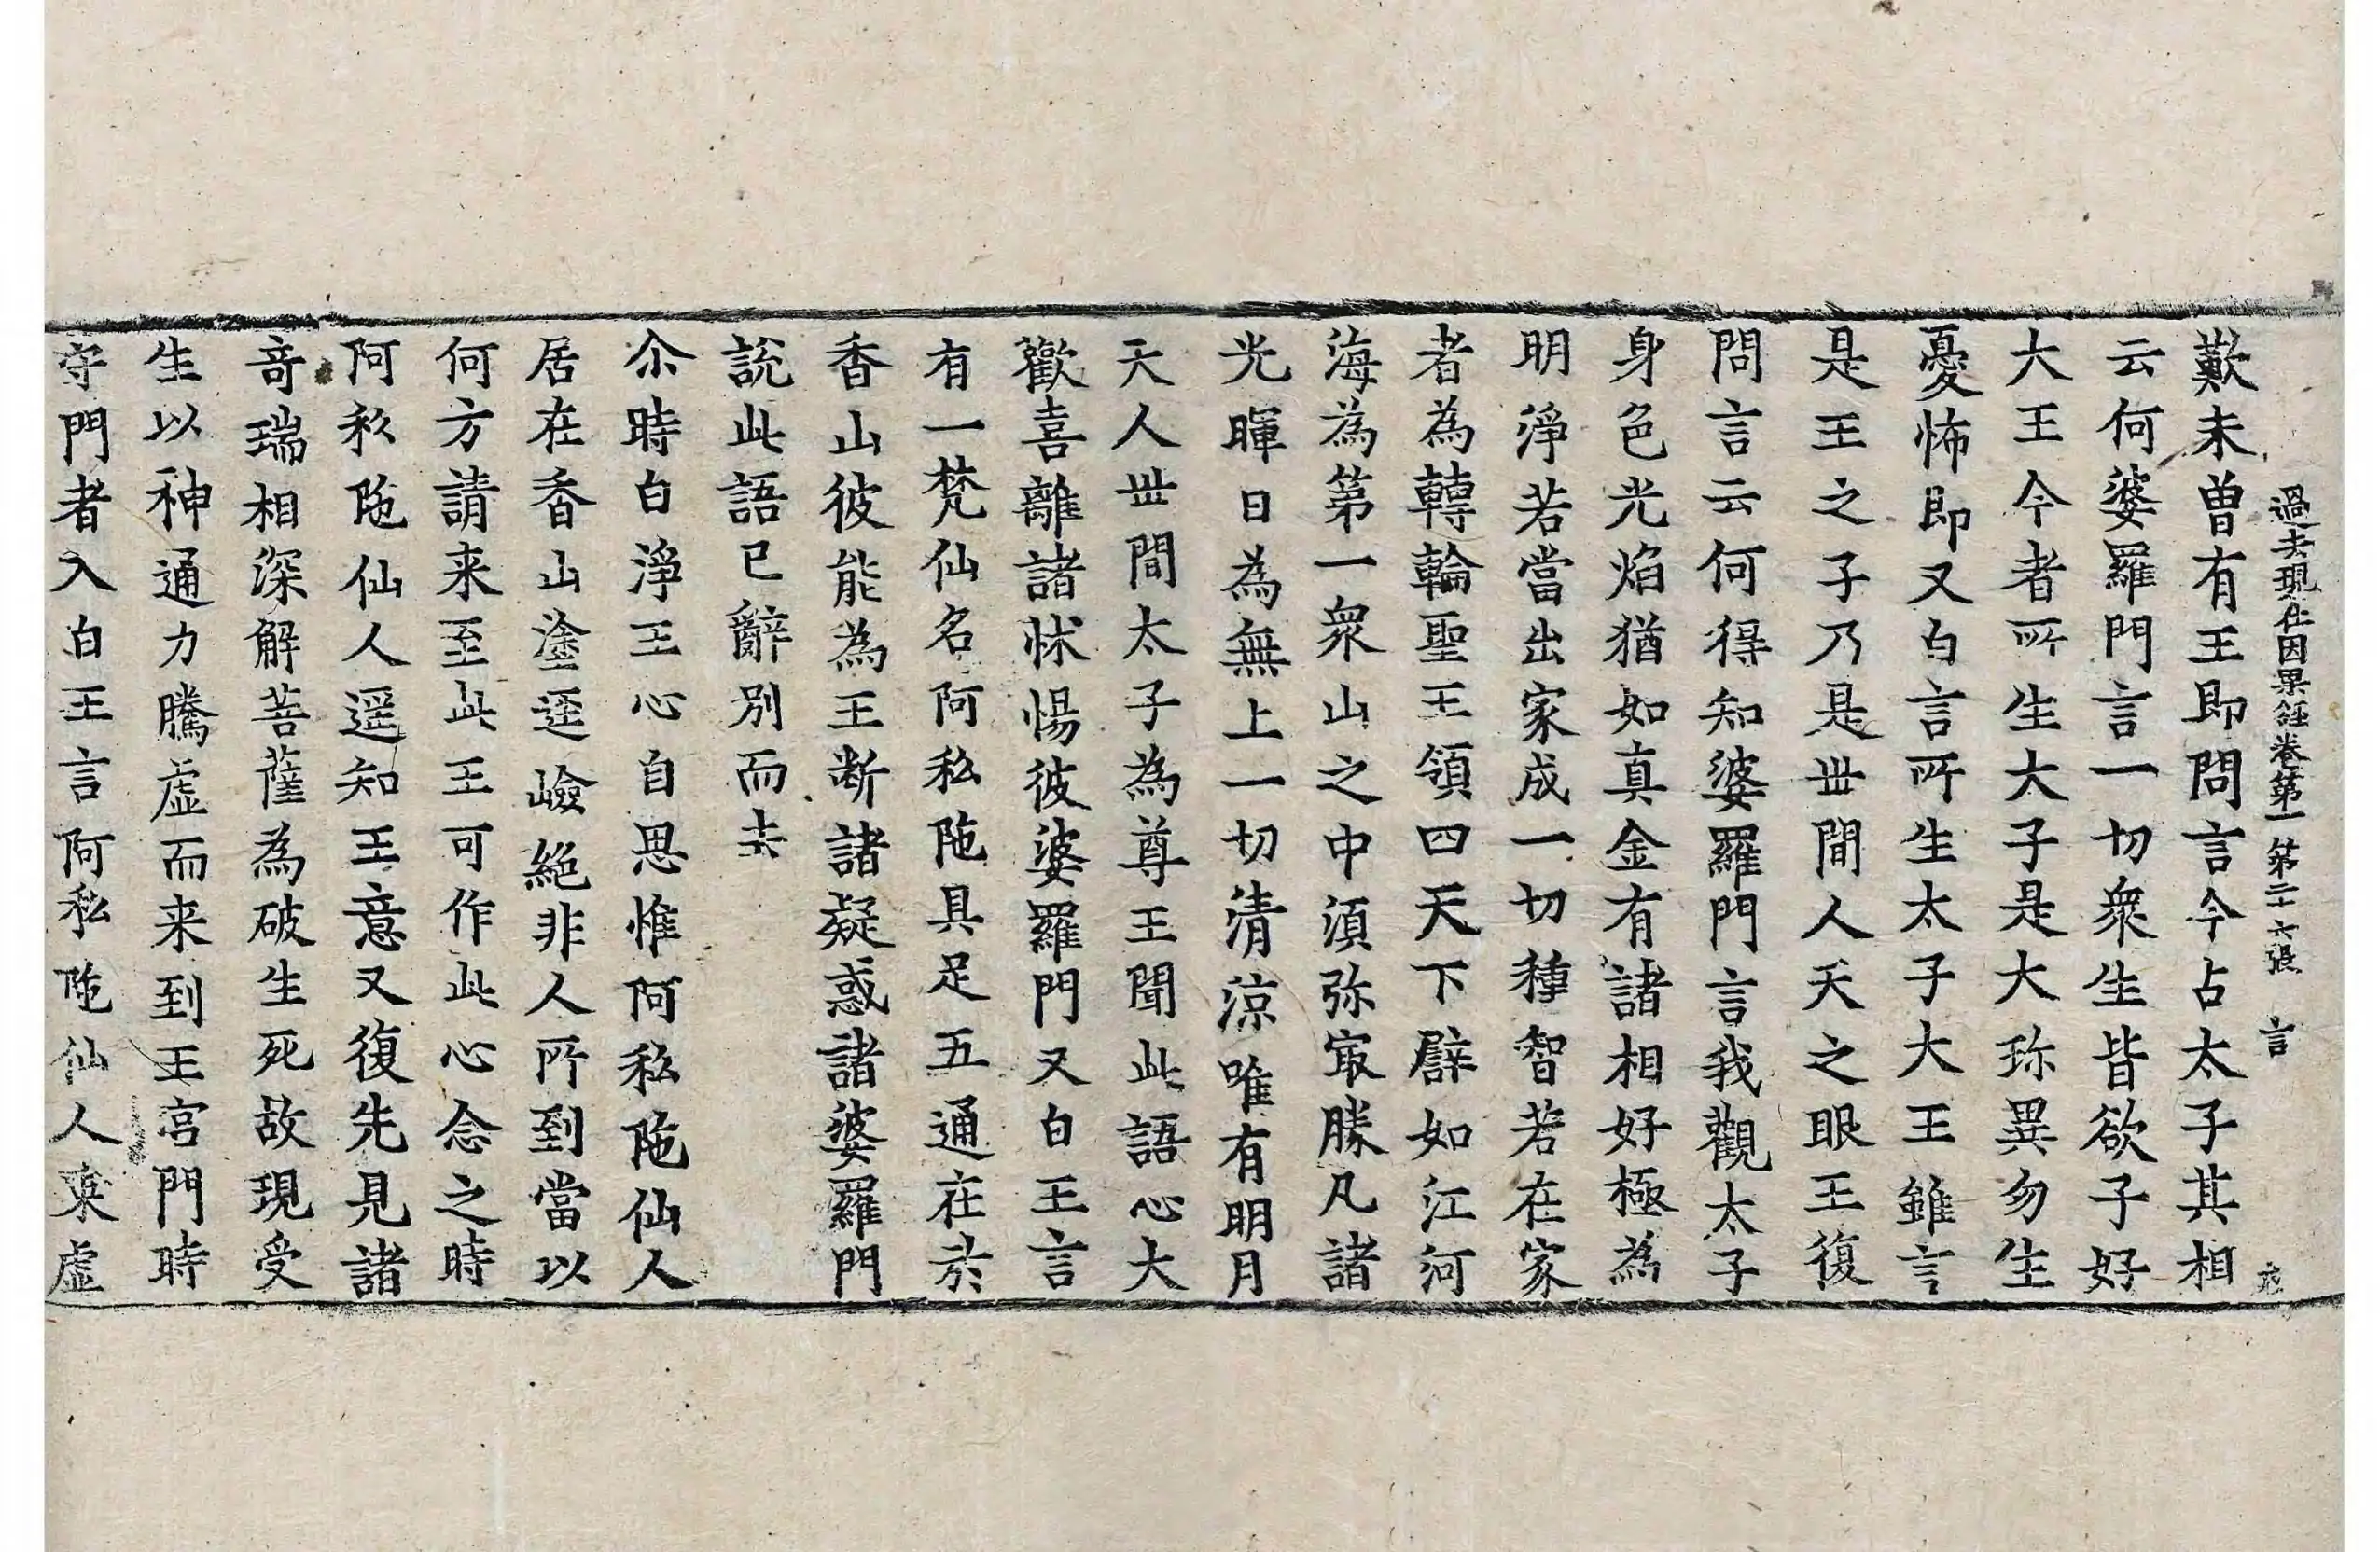 過去現在因果經卷第一 第二十六張 言
歎未曾有王即問言今占太子其相
云何婆羅門言一切衆生皆欲子好
大王今者所生大子是大珎異勿生
憂怖即又白言所生太子大王雖言
是王之子乃是丗間人天之眼王復
問言云何得知婆羅門言我觀太子
身色光焰猶如真金有諸相好極為
明淨若當出家成一切種智若在家
者為轉輪聖王領四天下譬如江河
海為第一衆山之中湏弥㝡勝凡諸
光暉日為無上一切清涼唯有明月
天人丗間太子為尊王聞此語心大
歡喜離諸怵惕彼婆羅門又白王言
有一梵仙名阿私陁具足五通在於
香山彼能為王断諸疑惑諸婆羅門
說此語已辭別而去
尒時白淨王心自思惟阿私陁仙人
居在香山塗逕嶮絕非人所到當以
何方請来至此王可作此心念之時
阿私陁仙人遥知王意又復先見諸
竒瑞相深解菩薩為破生死故現受
生以神通力騰虛而来到王宫門時
守門者入白王言阿私陁仙人乗虛